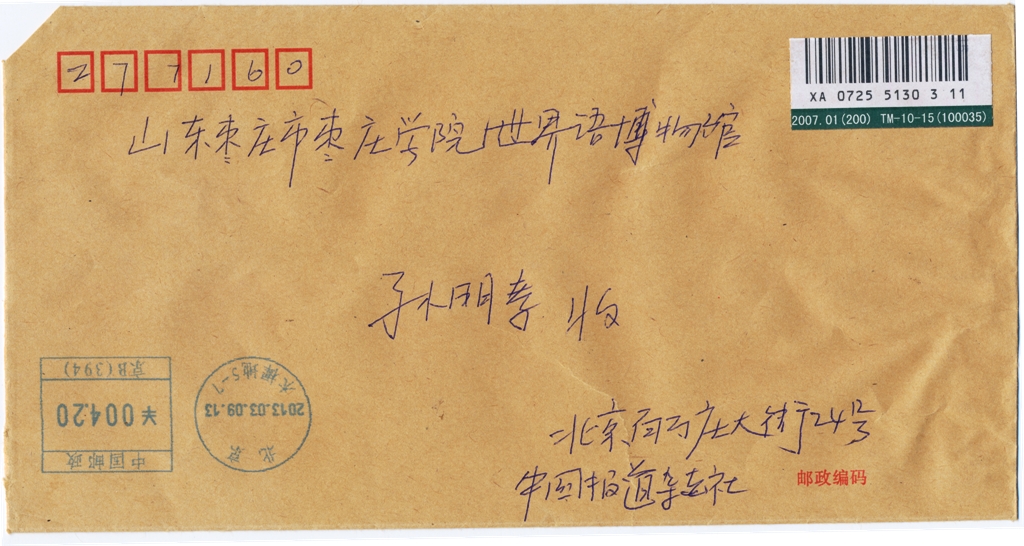 277160
XA 0725 5130 3 11
2007.01(200) TM-10-15(100035)
山东枣庄市枣庄学院世界语博物馆
孙明孝 收
京B(394)
¥004.20
中国邮政
木樨地5-7
2013.03.09.13
北京
北京百万庄大街24号
中国报道杂志社
邮政编码